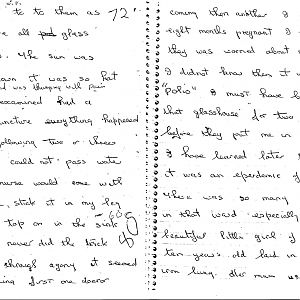 to to them as 72"
all glass
The sun was
it was so hot
was weeping with pain
examined had a
puncture everything happened
following two or three
could not pass water
nurse would come with
stick it in my leg
top on in the sink
never did the trick
through agony it seemed
first one doctor
coming then another I
eight months pregnant I
they was worried about
I didnt know then it
"Polio" I must have
that glasshouse for two
before they put me in
I have learned later
it was an epidemic of
there was so many
in that ward especially
beautiful little girl
ten years old laid in
iron lung. Her mum